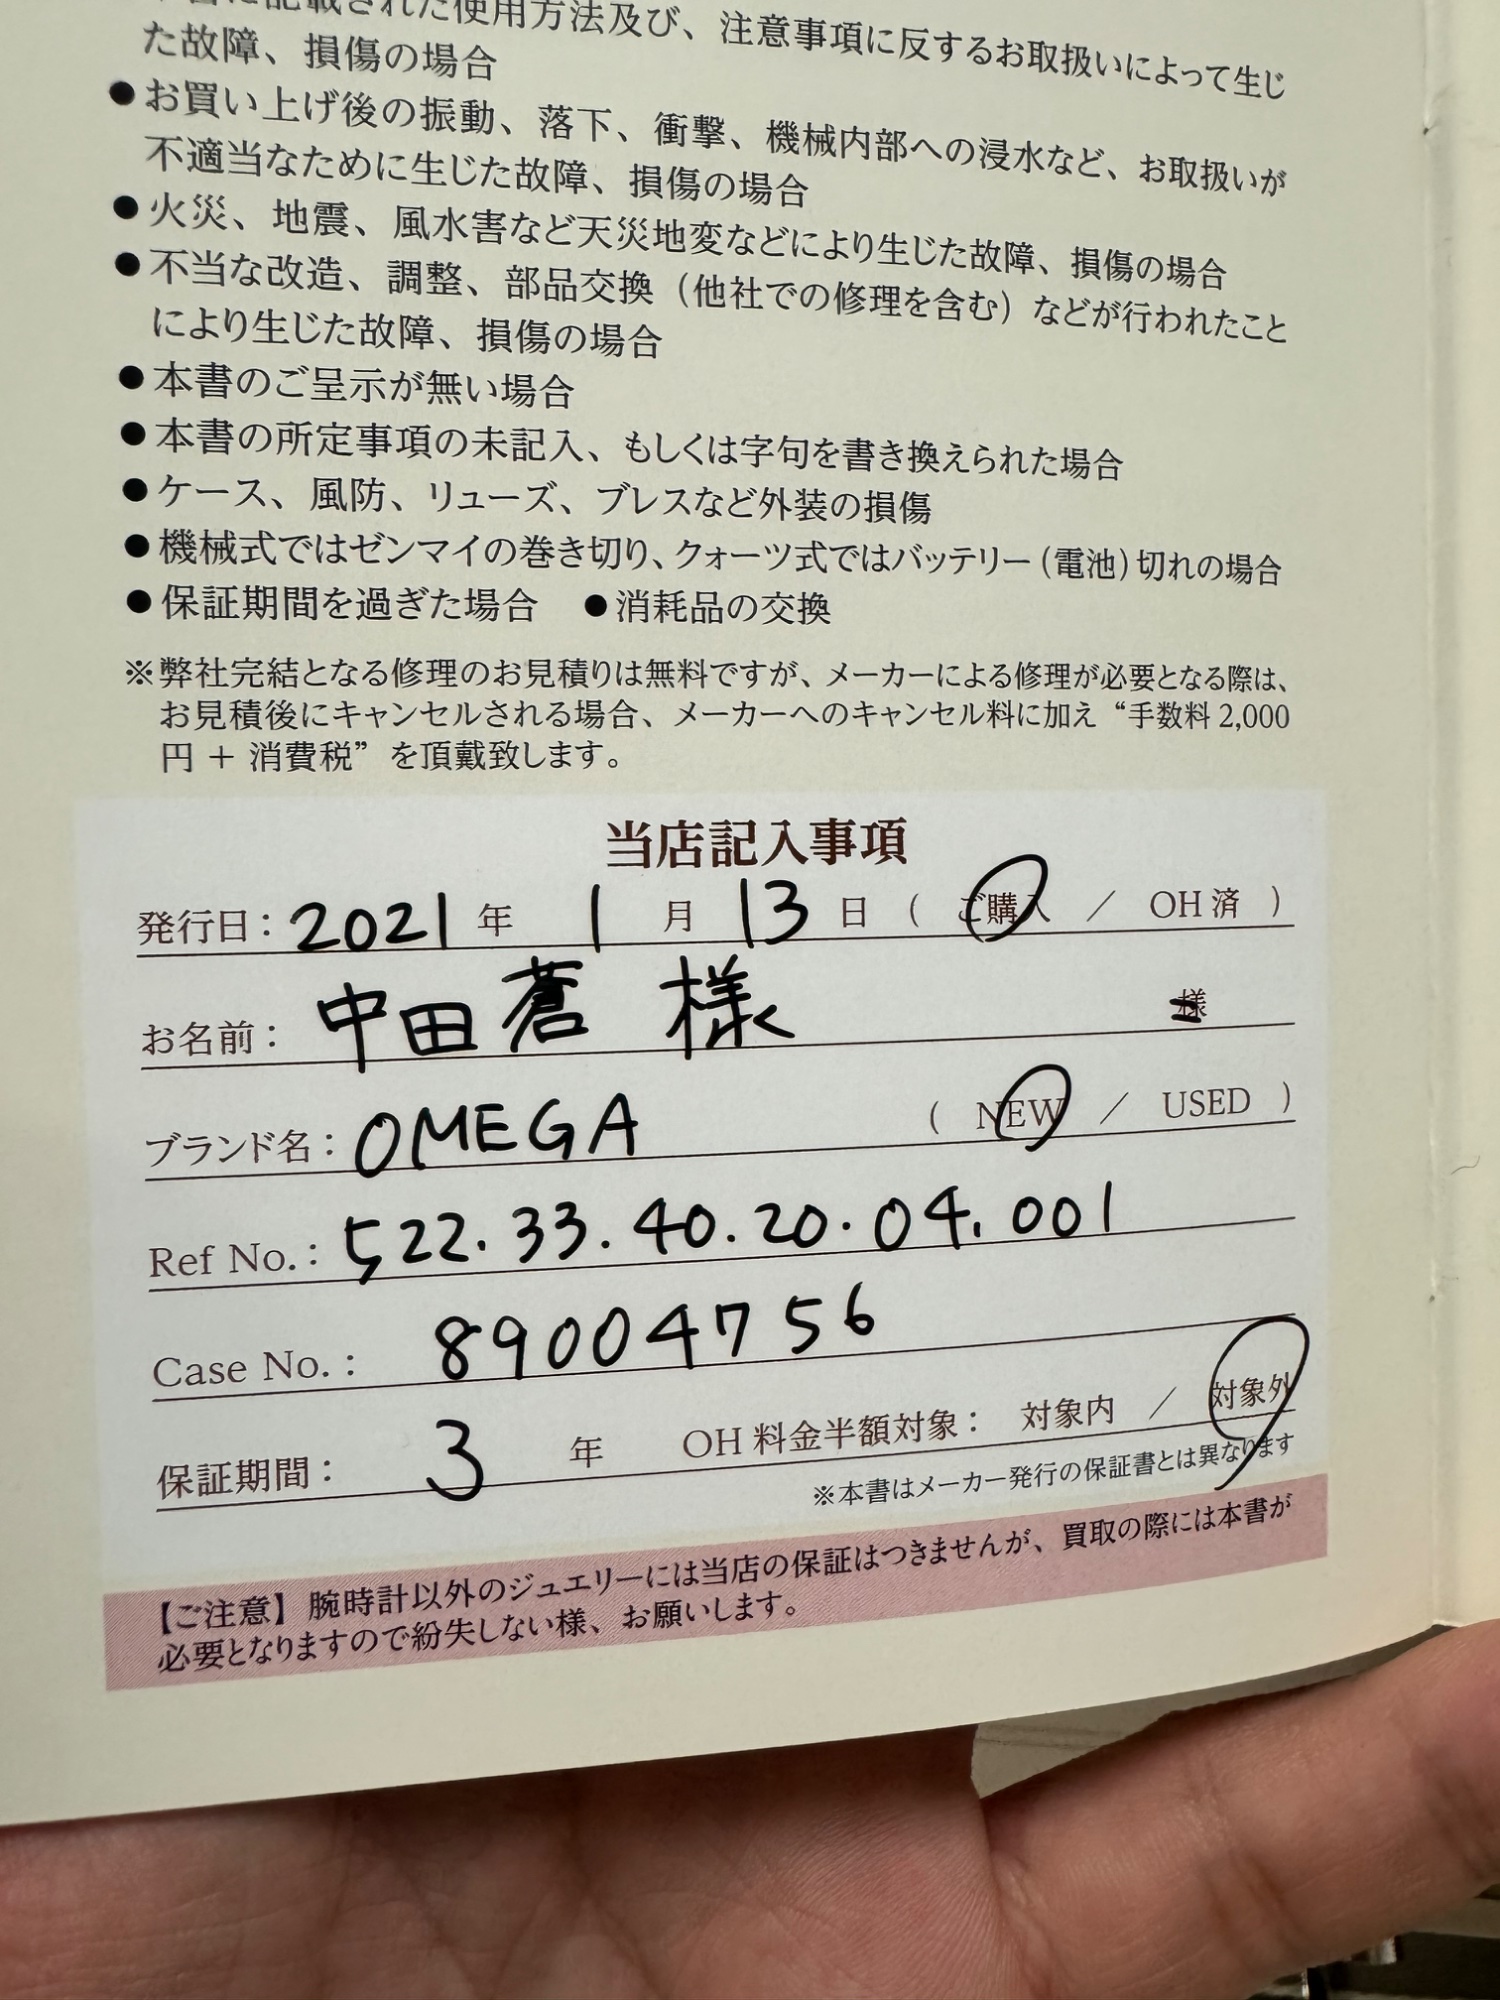 に記載された使用方法及び、注意事項に反するお取扱いによって生じ
た故障、損傷の場合
●お買い上げ後の振動、落下、衝撃、機械内部への浸水など、お取扱いが
不適当なために生じた故障、損傷の場合
●火災、地震、風水害など天災地変などにより生じた故障、損傷の場合
●不当な改造、調整、部品交換（他社での修理を含む）などが行われたこと
により生じた故障、損傷の場合
●本書のご呈示が無い場合
●本書の所定事項の未記入、もしくは字句を書き換えられた場合
●ケース、風防、リューズ、ブレスなど外装の損傷
●機械式ではゼンマイの巻き切り、クォーツ式ではバッテリー(電池)切れの場合
●保証期間を過ぎた場合　●消耗品の交換
※弊社完結となる修理のお見積りは無料ですが、メーカーによる修理が必要となる際は、
お見積後にキャンセルされる場合、メーカーへのキャンセル料に加え“手数料2,000
円 + 消費税”を頂戴致します。
当店記入事項
発行日：2021 年 1 月 13 日 ( ご購入 / OH済 )
お名前：中田蒼 様 様
ブランド名：OMEGA ( NEW / USED )
Ref No.：522.33.40.20.04.001
Case No.：89004756
保証期間：3 年 OH料金半額対象：対象内 / 対象外
※本書はメーカー発行の保証書とは異なります
【ご注意】腕時計以外のジュエリーには当店の保証はつきませんが、買取の際には本書が
必要となりますので紛失しない様、お願いします。